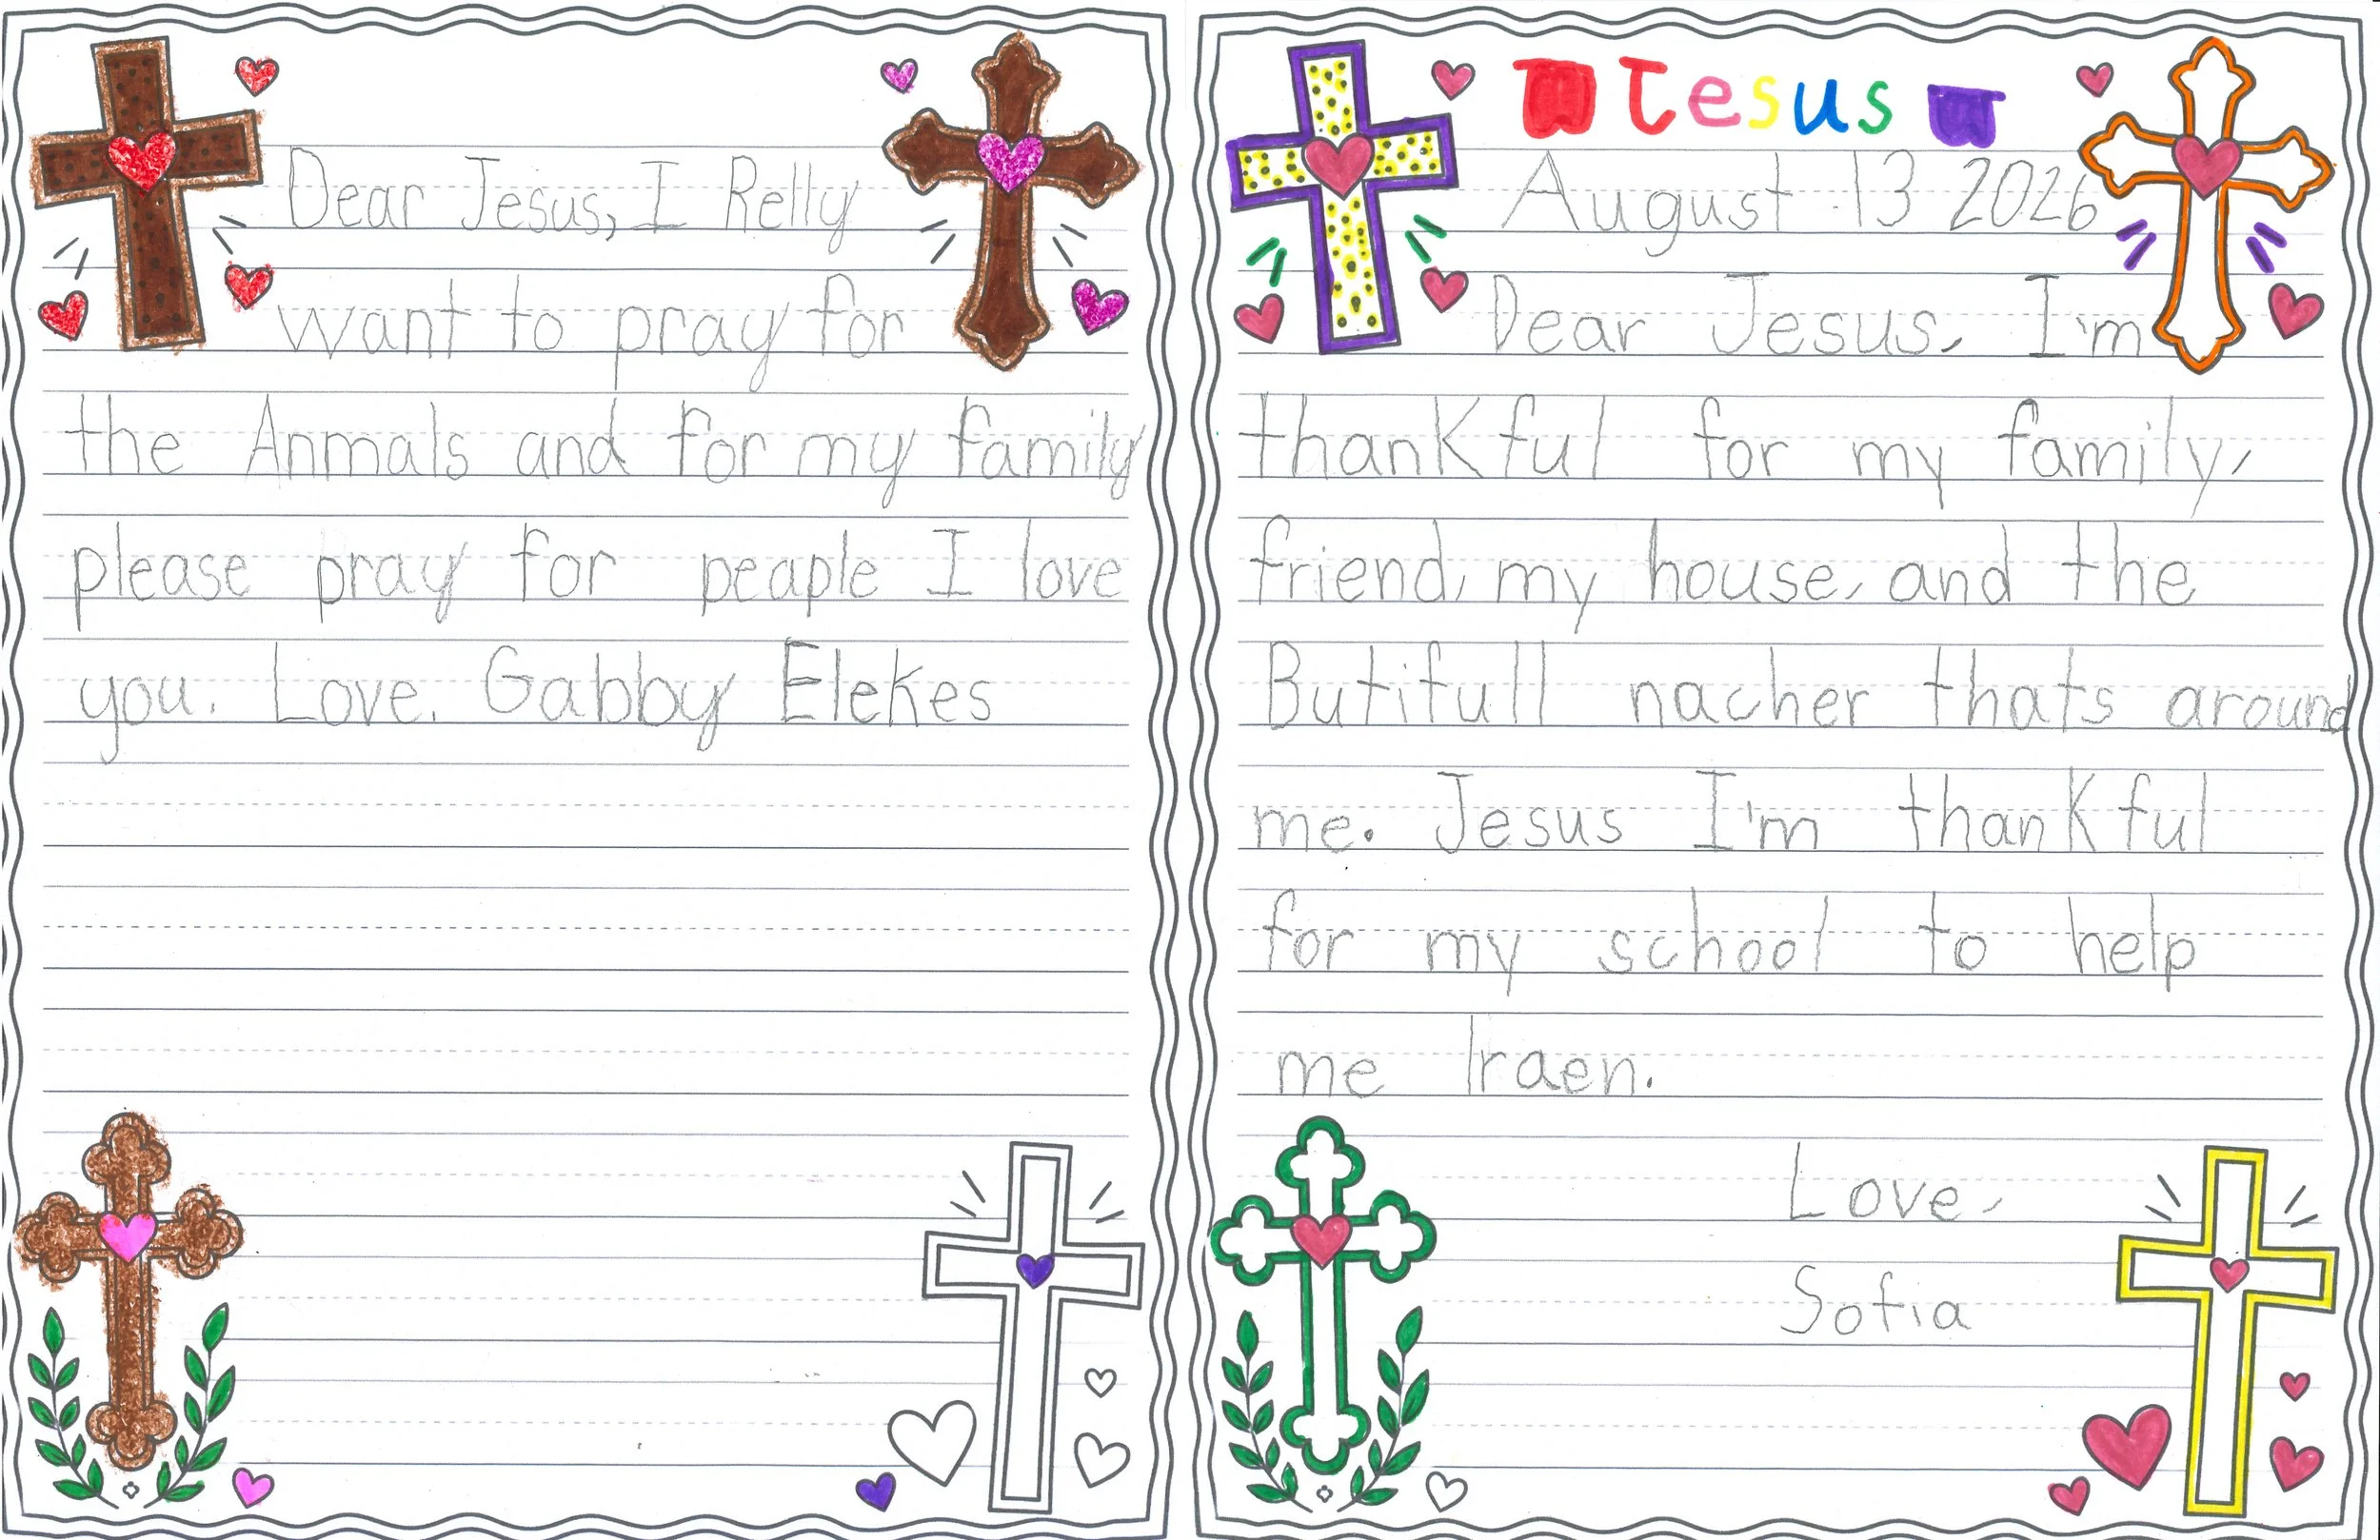 Dear Jesus, I Relly
want to pray for
the Anmals and for my family
please pray for peaple I love
you. Love. Gabby Elekes
Jesus
August 13 2026
Dear Jesus, I'm
thankful for my family,
friend, my house, and the
Butifull nacher thats around
me. Jesus I'm thankful
for my school to help
me lraen.
Love,
Sofia